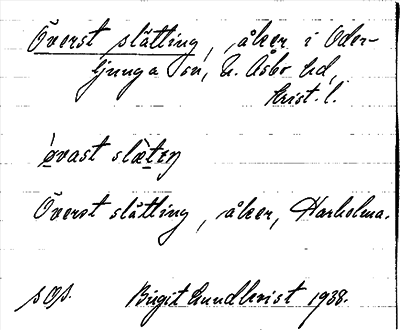 Överst slätting, åker i Oder-
ljunga sn, N. Åsbo hd,
Krist. l.
ø̀vast slætεŋ
Överst slätting, åker, Harholma.
sOp. Birgit Lundkvist 1938.